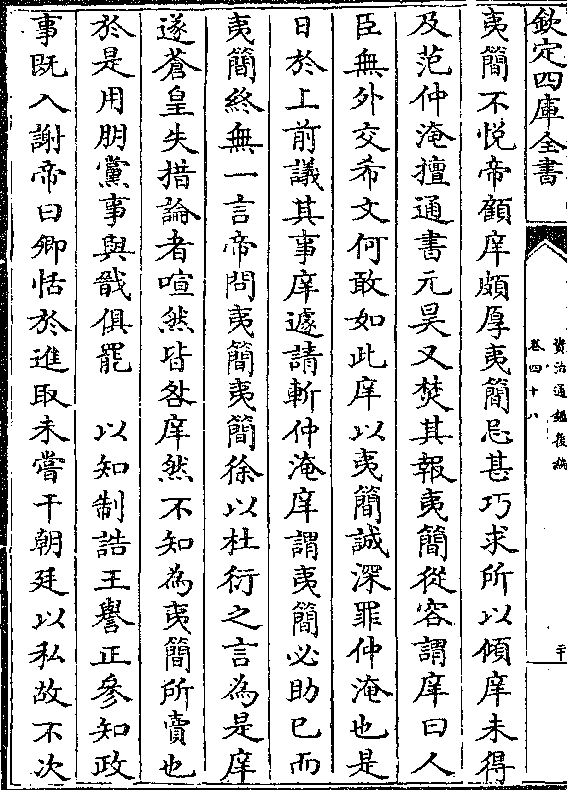 欽定四庫全書
資治通鑑後編
卷四十八
二十
夷簡不悅帝顧庠頗厚夷簡忌甚巧求所以傾庠未得
及范仲淹擅通書元昊又焚其報夷簡從容謂庠曰人
臣無外交希文何敢如此庠以夷簡誠深罪仲淹也是
日於上前議其事庠遽請斬仲淹庠謂夷簡必助已而
夷簡終無一言帝問夷簡夷簡徐以杜衍之言為是庠
遂蒼皇失措論者喧然皆咎庠然不知為夷簡所賣也
於是用朋黨事與戩俱罷　以知制誥王舉正參知政
事既入謝帝曰卿恬於進取未嘗干朝廷以私故不次